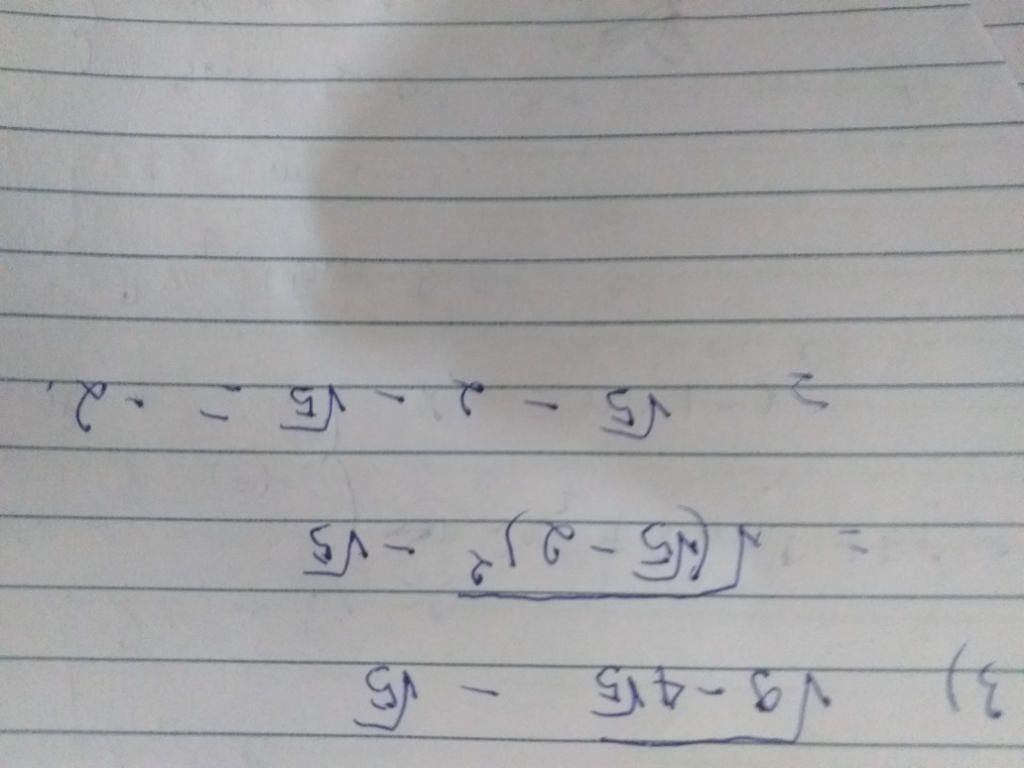 3) √9-4√5 - √5
= √(√5 - 2)² - √5
= √5 - 2 - √5 = -2.